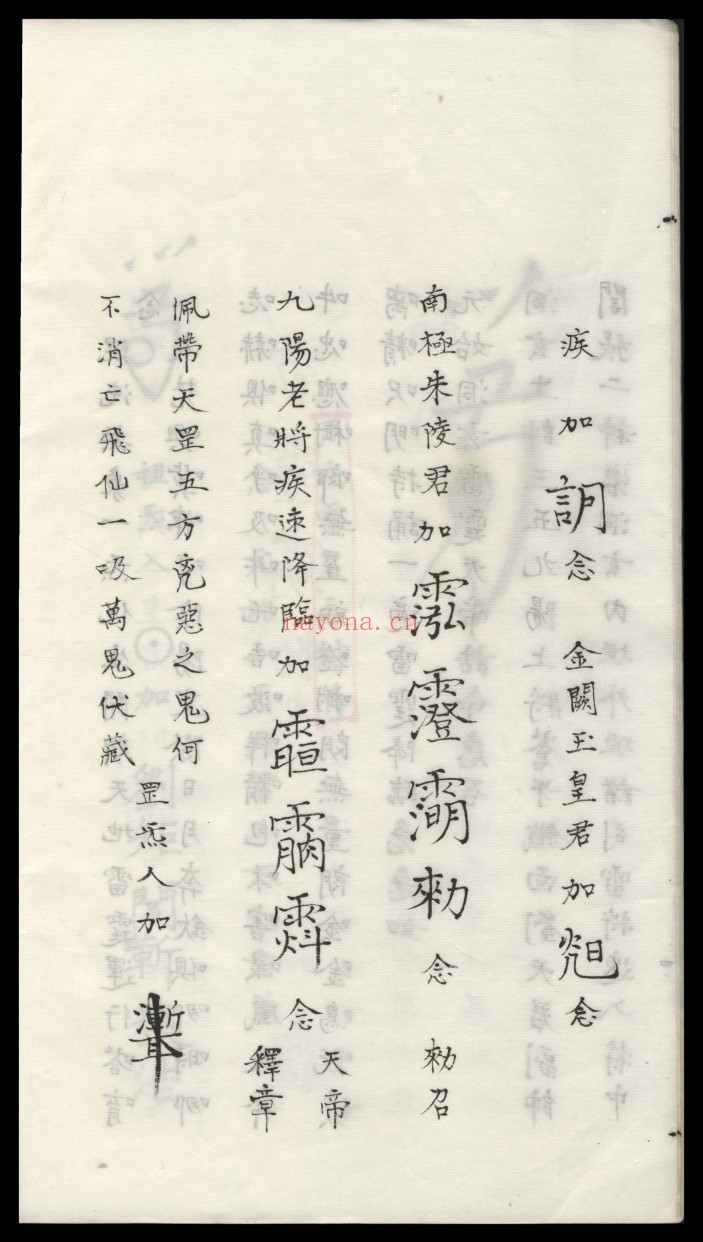 疾加䚯念金闕玉皇君加念
南極朱陵君加勑念勑召
九陽老將疾速降臨加念天帝
釋章
佩帶天罡五方兇惡之鬼何
不消亡飛仙一吸萬鬼伏藏
罡炁入加
nayona.cn